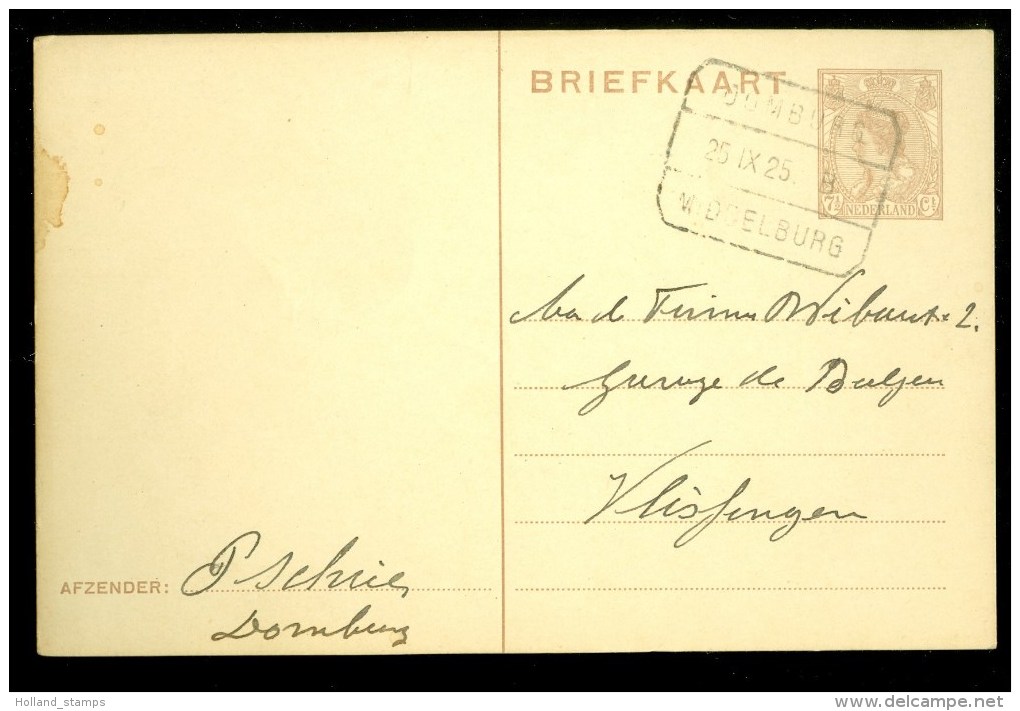 BRIEFKAART
DOMBURG
25 IX 25. B
MIDDELBURG
7½ NEDERLAND Ct
Firma Wibaut
Garage de
Vlissingen
AFZENDER: P
Domburg
Holland_stamps
delcampe.net